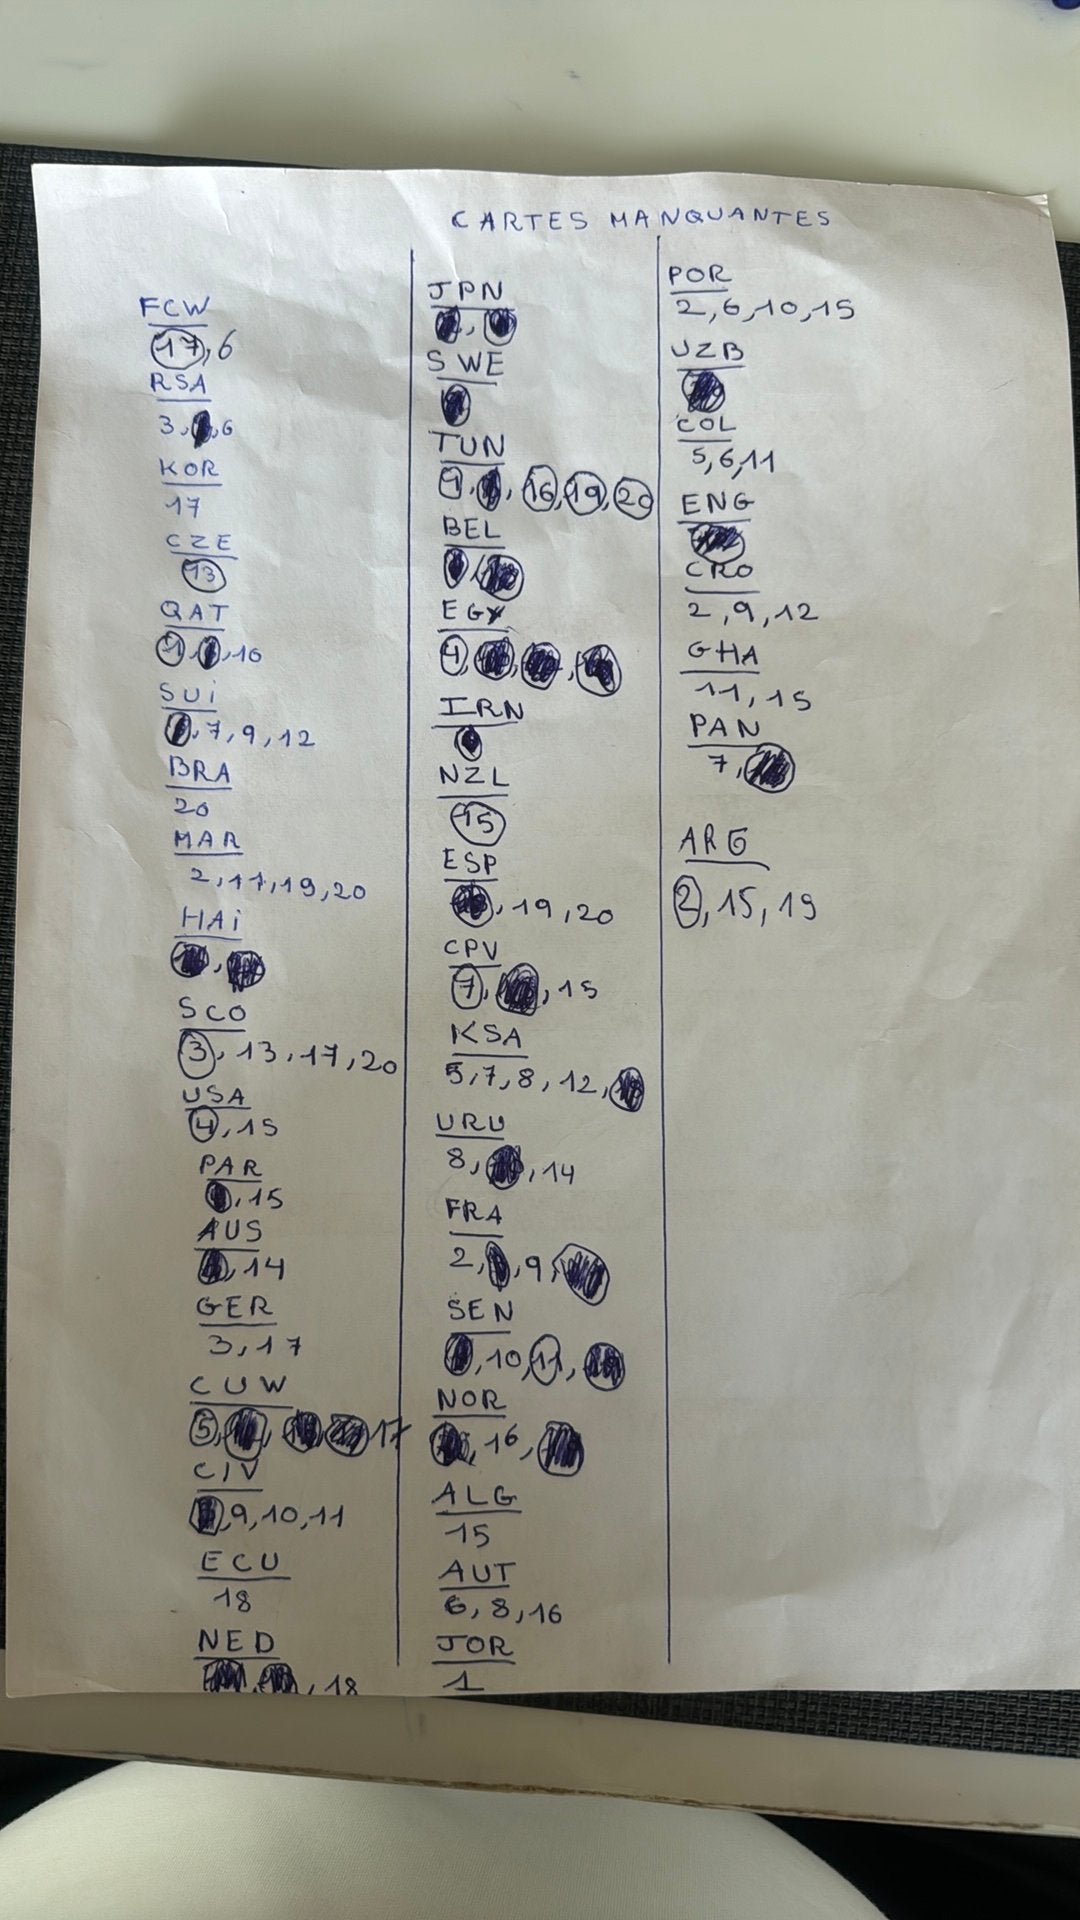 CARTES MANQUANTES
FCW
17, 6
RSA
3, 6
KOR
17
CZE
13
QAT
1, 16
SUi
7, 9, 12
BRA
20
MAR
2, 11, 19, 20
HAi
SCO
3, 13, 17, 20
USA
4, 15
PAR
15
AUS
14
GER
3, 17
CUW
5, 17
CIV
9, 10, 11
ECU
18
NED
18
JPN
SWE
TUN
1, 16, 19, 20
BEL
EGY
4
IRN
NZL
15
ESP
19, 20
CPV
7, 15
KSA
5, 7, 8, 12
URU
8, 14
FRA
2, 9
SEN
10, 11
NOR
16
ALG
15
AUT
6, 8, 16
JOR
1
POR
2, 6, 10, 15
UZB
COL
5, 6, 11
ENG
CRO
2, 9, 12
GHA
11, 15
PAN
7
ARG
2, 15, 19